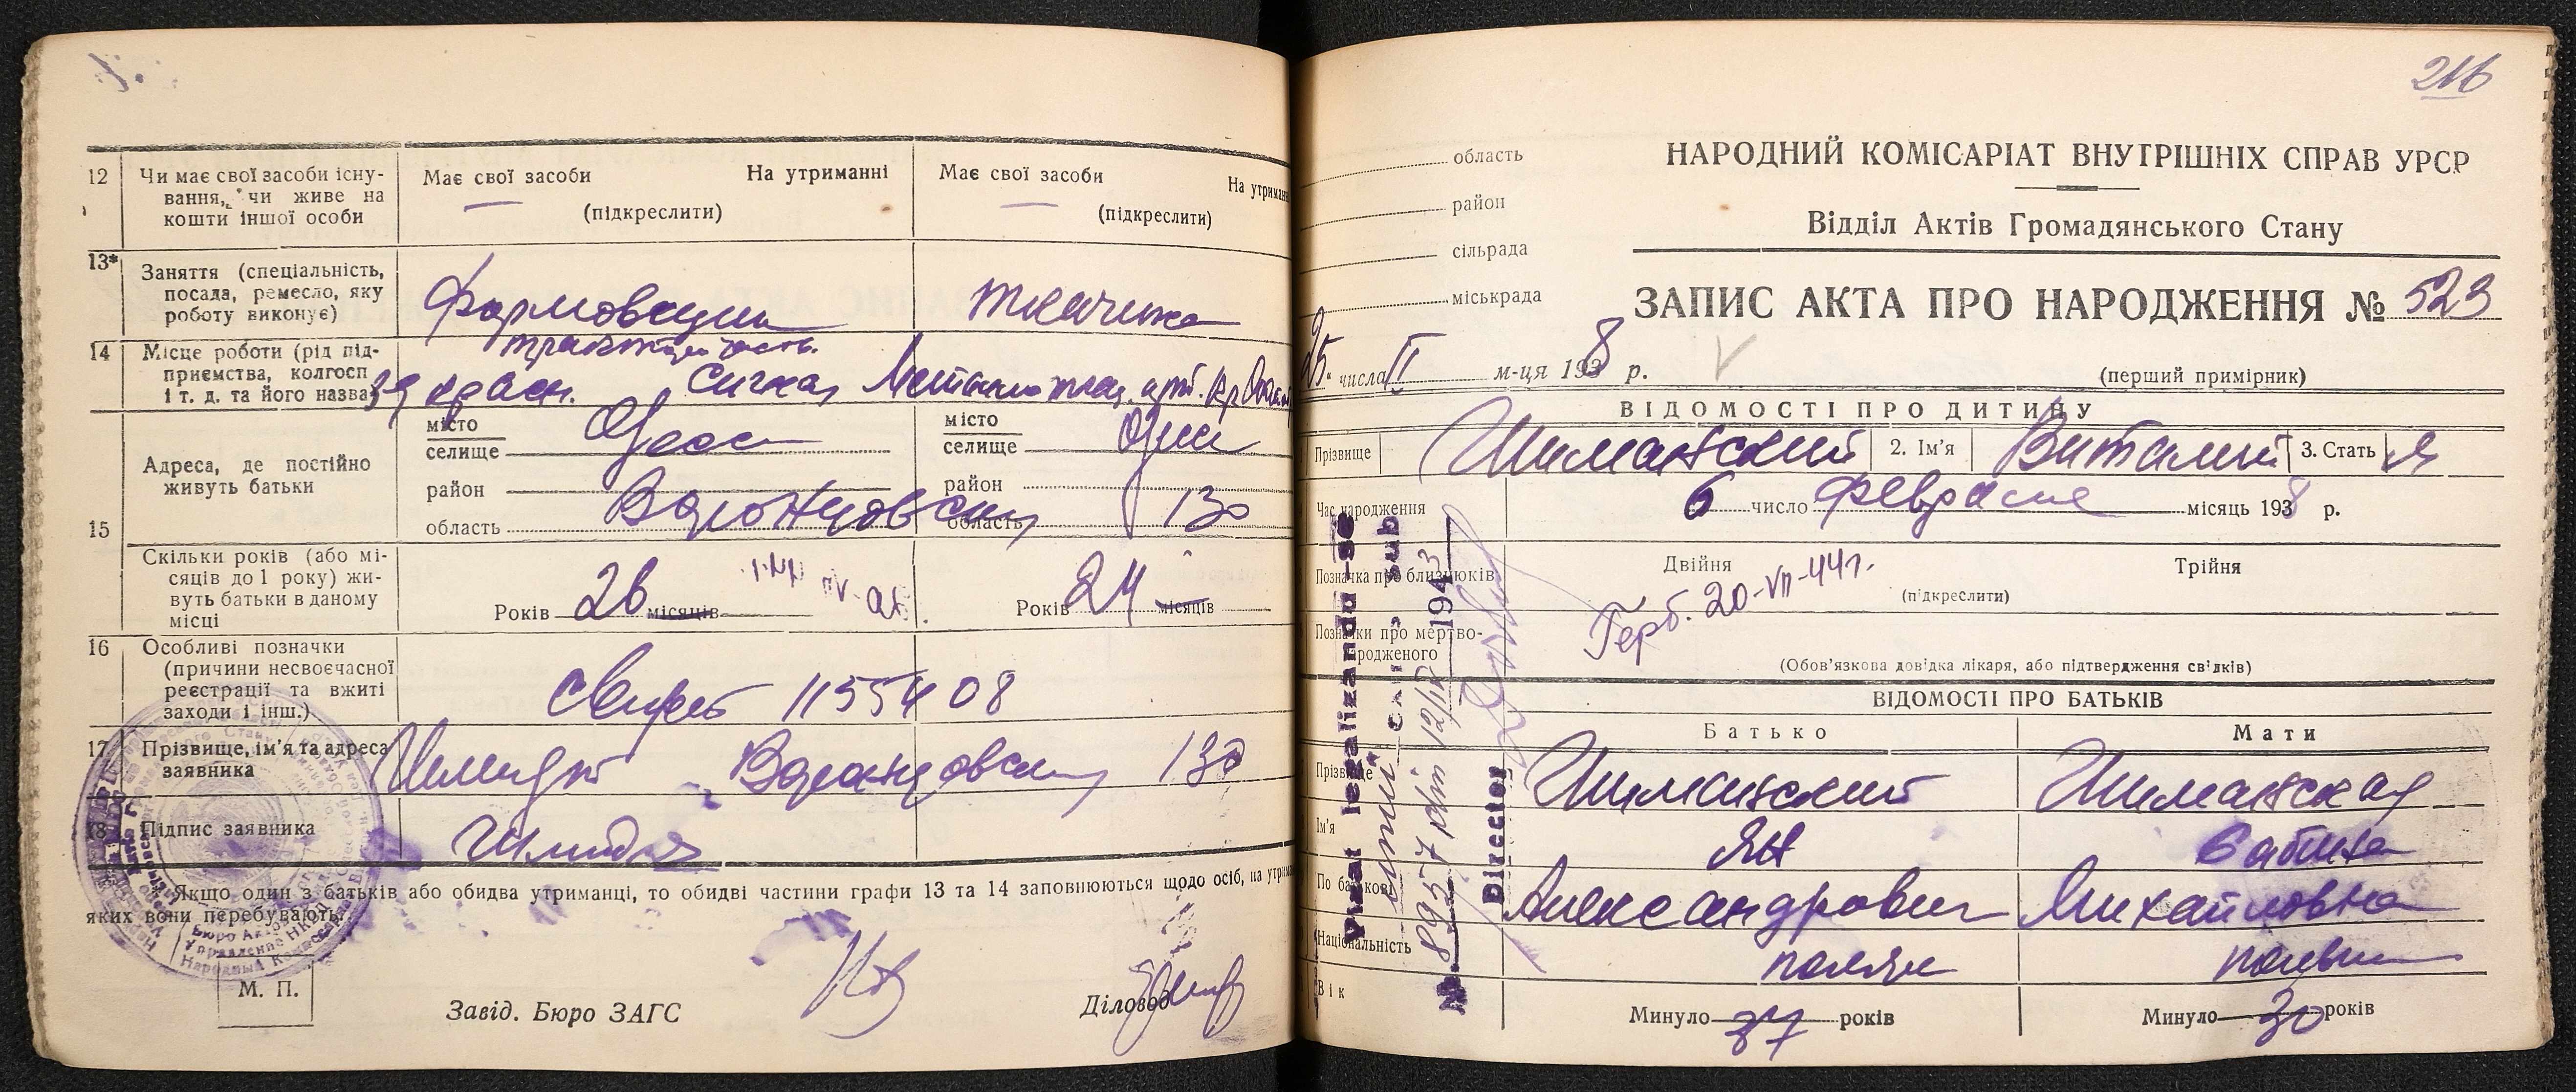 12 Чи має свої засоби існу-
вання, чи живе на
кошти іншої особи
Має свої засоби На утриманні
(підкреслити)
Має свої засоби На утриманні
(підкреслити)
13* Заняття (спеціальність,
посада, ремесло, яку
роботу виконує)
Формовщик
ткачиха
14 Місце роботи (рід під-
приємства, колгосп
і т. д. та його назва)
15 Адреса, де постійно
живуть батьки
місто
селище Одесса
район
область Воронцовский
місто
селище Одесса
район
область 130
Скільки років (або мі-
сяців до 1 року) жи-
вуть батьки в даному
місці
Років 26 місяців
Років 24 місяців
16 Особливі позначки
(причини несвоєчасної
реєстрації та вжиті
заходи і інш.)
1155408
17 Прізвище, ім'я та адреса
заявника
Воронцовский 130
18 Підпис заявника
Якщо один з батьків або обидва утриманці, то обидві частини графи 13 та 14 заповнюються щодо осіб, на утрим
яких вони перебувають.
М. П.
Завід. Бюро ЗАГС
Діловод
216
область
район
сільрада
міськрада
НАРОДНИЙ КОМІСАРІАТ ВНУТРІШНІХ СПРАВ УРСР
Відділ Актів Громадянського Стану
ЗАПИС АКТА ПРО НАРОДЖЕННЯ № 523
25 числа II м-ця 1938 р.
(перший примірник)
ВІДОМОСТІ ПРО ДИТИНУ
Прізвище Шиманский 2. Ім'я Виталий 3. Стать
Час народження 6 число февраля місяць 1938 р.
Позначка про близнюків
Двійня Трійня
(підкреслити)
Герб. 20-VII-44 г.
Позначки про мертво-
родженого
(Обов'язкова довідка лікаря, або підтвердження свідків)
ВІДОМОСТІ ПРО БАТЬКІВ
Батько Мати
Прізвище Шиманский Шиманская
Ім'я Ян Сабина
По батькові Александрович Михайловна
Національність поляк
Вік Минуло 37 років Минуло 30 років
Vizat legalizandu-se
sub
No. 8957 din 12/IX 1943
Director